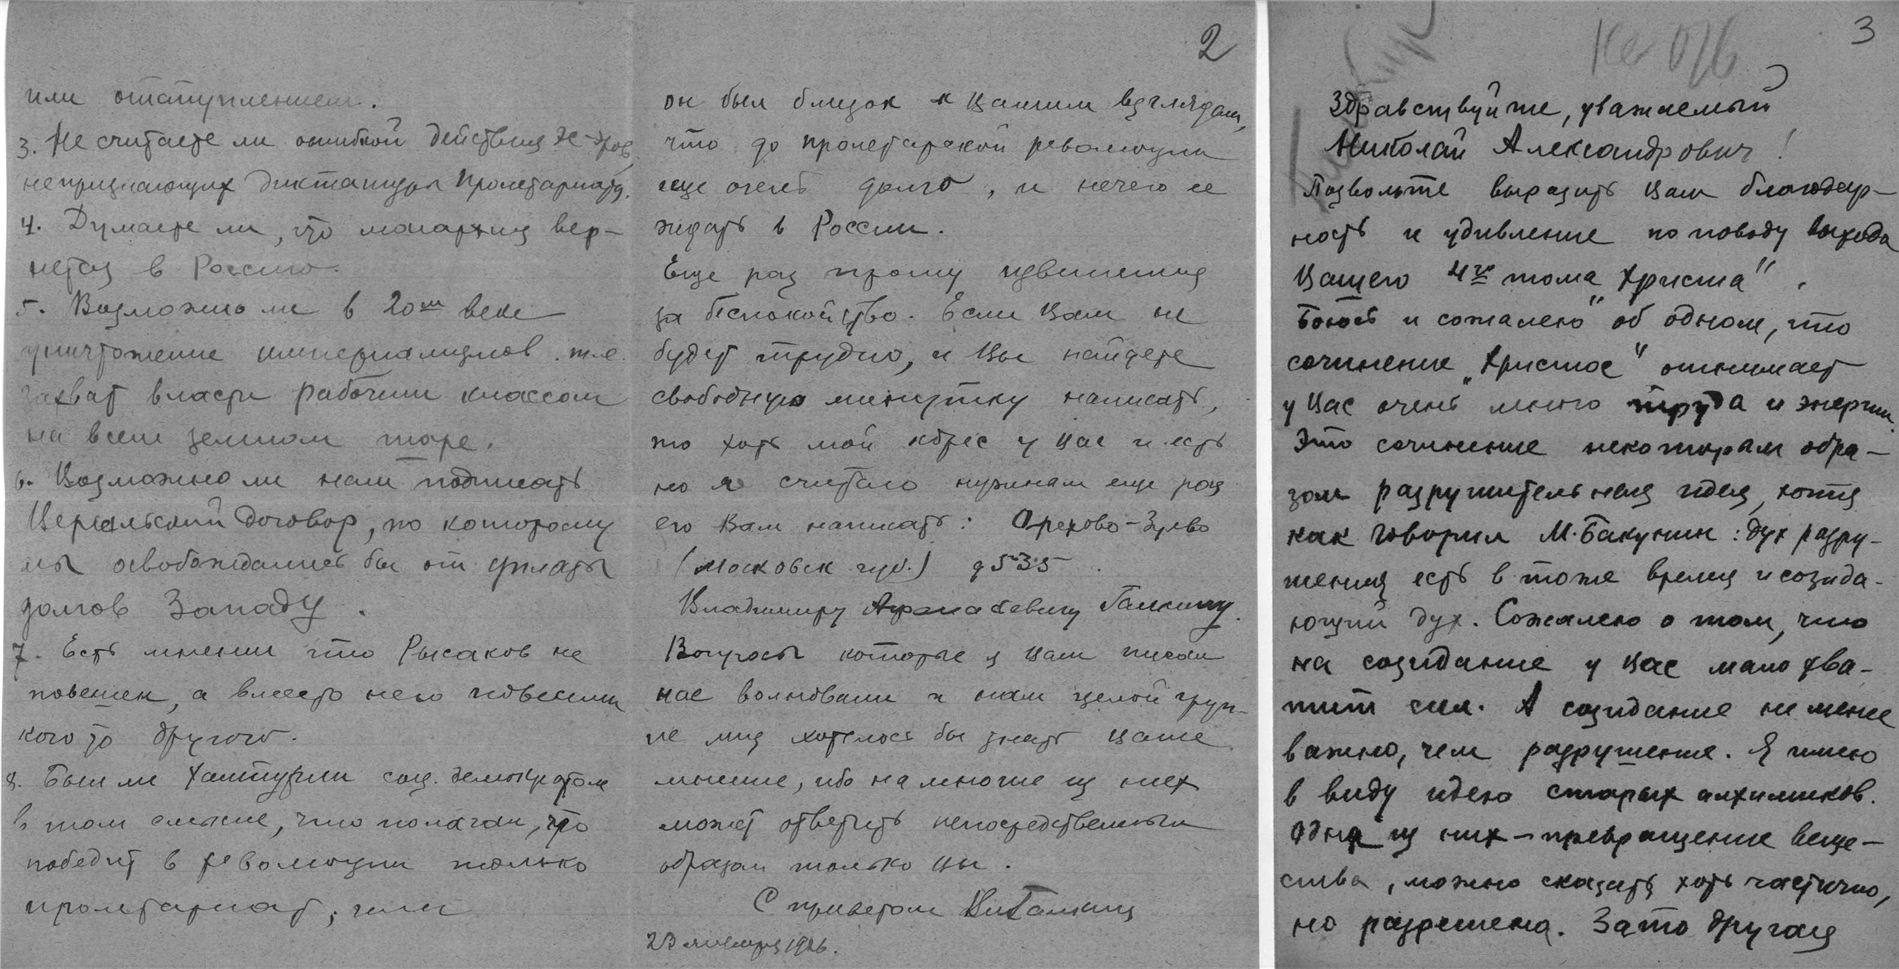 или отступлением.
3. Не считаете ли ошибкой действия
непризнающих диктатуры пролетариата.
4. Думаете ли, что монархия вер-
нется в Россию.
5. Возможно ли в 20ом веке
уничтожение империализмов. т.е.
захват власти рабочим классом
на всем земном шаре.
6. Возможно ли нам подписать
Версальский договор, по которому
мы освобождались бы от уплаты
долгов Западу.
7. Есть мнении что Рысаков не
повешен, а вместо него повесили
кого то другого.
8. Был ли Халтурин соц. демократом
в том смысле, что полагал, что
победит в революции только
пролетариат, или
2
он был близок к Вашим взглядам,
что до пролетарской революции
еще очень долго, и нечего ее
ждать в России.
Еще раз прошу извинения
за беспокойство. Если Вам не
будет трудно, и Вы найдете
свободную минутку написать,
то хоть мой адрес у Вас и есть
но я считаю нужным еще раз
его Вам написать: Орехово-Зуево
(Московск губ.) д 535.
Владимиру Афанасевичу Галкину.
Вопросы которые я Вам писал
нас волновали и нам целой груп-
пе лиц хотелось бы знать Ваше
мнение, ибо на многие из них
может ответить непосредственным
образом только Вы.
С приветом Вл Галкин
1926.
3
Здравствуйте, уважаемый
Николай Александрович!
Позвольте выразить Вам благодар-
ность и удивление по поводу выхода
Вашего 4го тома „Христа".
Боюсь и сожалею об одном, что
сочинение „Христос" отнимает
у Вас очень много труда и энергии.
Это сочинение некоторым обра-
зом разрушительная идея, хотя
как говорил М. Бакунин: дух разру-
шения есть в тоже время и созида-
ющий дух. Сожалею о том, что
на созидание у Вас мало хва-
тит сил. А созидание не менее
важно, чем разрушение. Я имею
в виду идею старых алхимиков.
Одна из них - превращение веще-
ства, можно сказать хоть частично,
но разрешена. Зато другая